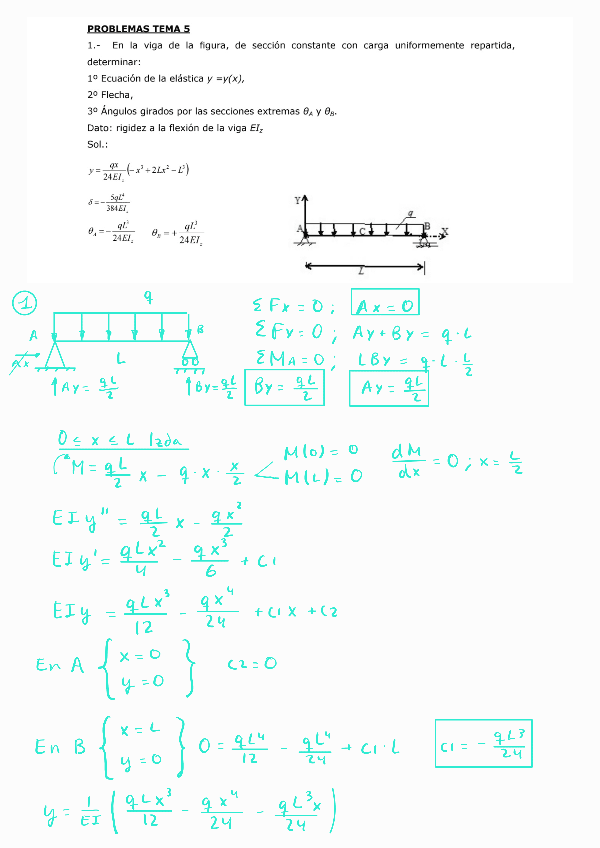 PROBLEMAS TEMA 5
1.- En la viga de la figura, de sección constante con carga uniformemente repartida,
determinar:
1º Ecuación de la elástica y =y(x),
2º Flecha,
3º Ángulos girados por las secciones extremas θA y θB.
Dato: rigidez a la flexión de la viga EIz
Sol.:
y = qx/24EIz (-x³ + 2Lx² - L³)
δ = - 5qL⁴/384EIz
θA = - qL³/24EIz θB = + qL³/24EIz
Y q A C B X
L
1 q ΣFx = 0; Ax = 0
A B ΣFy = 0; Ay + By = q·L
Ax L ΣMA = 0; LBy = q·L·L/2
Ay = qL/2 By = qL/2 By = qL/2 Ay = qL/2
0 ≤ x ≤ L Izda
M = qL/2 x - q·x·x/2 M(0) = 0 M(L) = 0 dM/dx = 0; x = L/2
EIy'' = qL/2 x - qx²/2
EIy' = qLx²/4 - qx³/6 + C1
EIy = qLx³/12 - qx⁴/24 + C1x + C2
En A { x = 0 y = 0 } C2 = 0
En B { x = L y = 0 } 0 = qL⁴/12 - qL⁴/24 + C1·L C1 = - qL³/24
y = 1/EI ( qLx³/12 - qx⁴/24 - qL³x/24 )